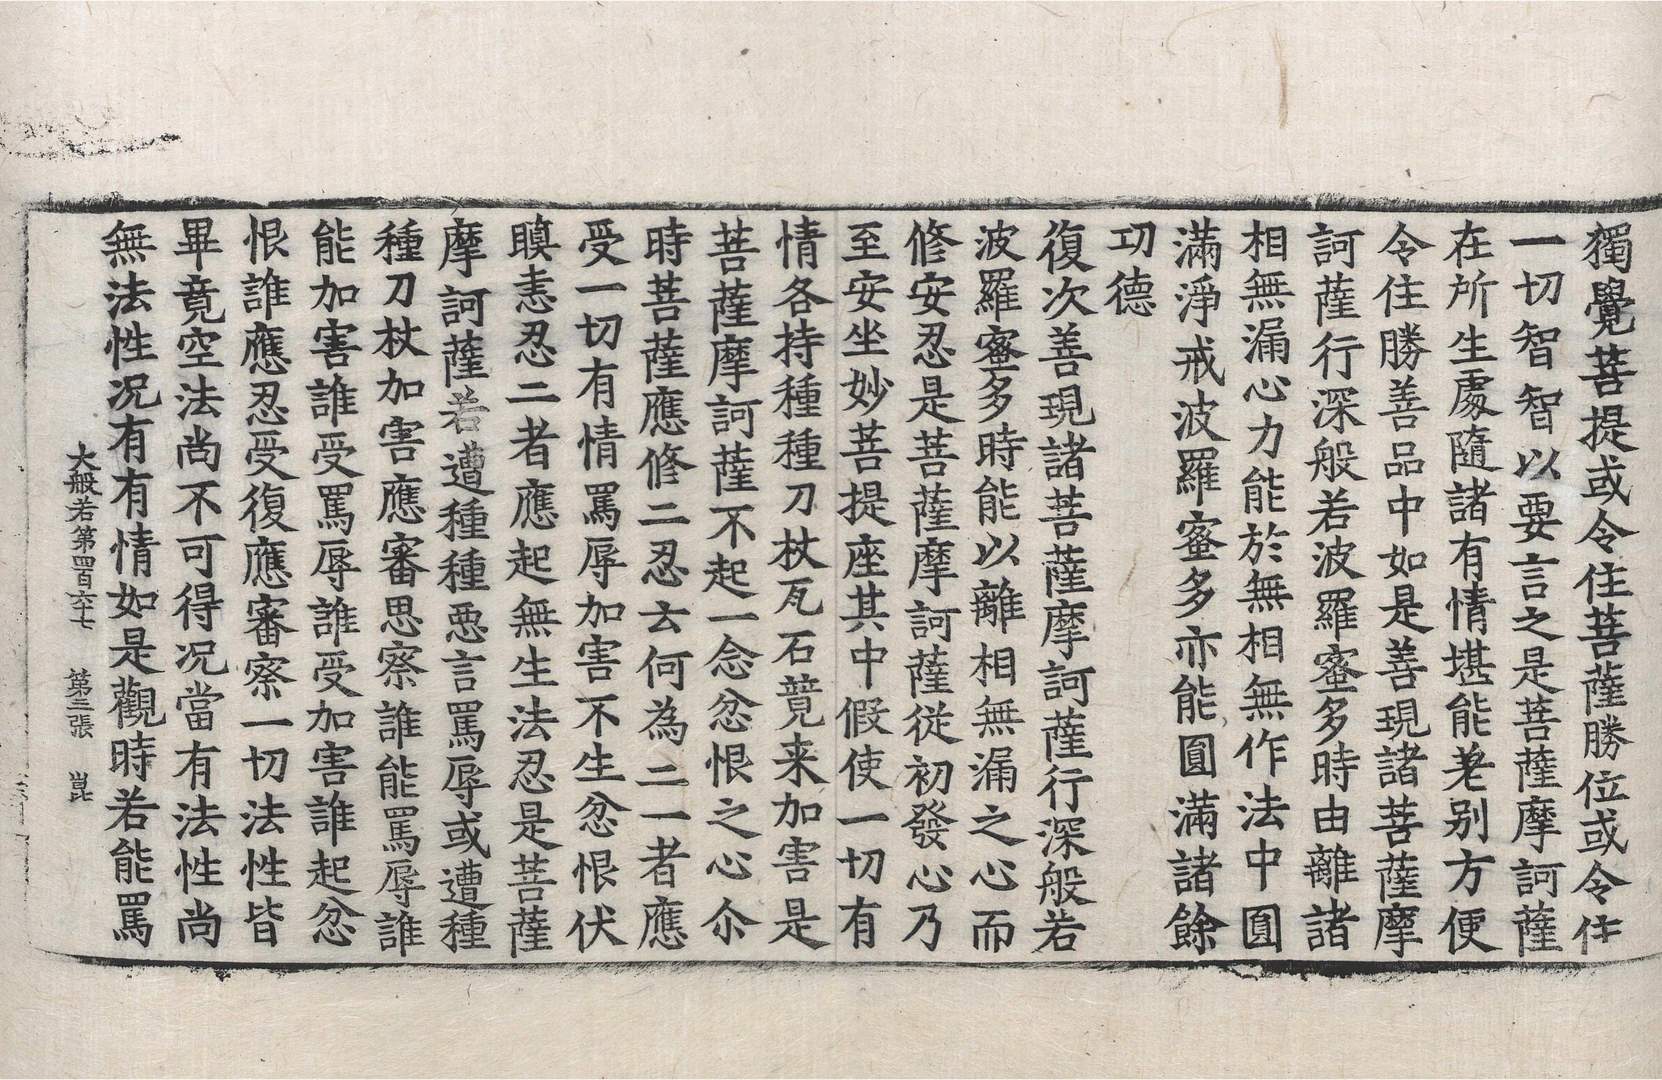 獨覺菩提或令住菩薩勝位或令住
一切智智以要言之是菩薩摩訶薩
在所生處隨諸有情堪能差别方便
令住勝善品中如是善現諸菩薩摩
訶薩行深般若波羅蜜多時由離諸
相無漏心力能於無相無作法中圓
滿淨戒波羅蜜多亦能圓滿諸餘
功德
復次善現諸菩薩摩訶薩行深般若
波羅蜜多時能以離相無漏之心而
修安忍是菩薩摩訶薩從初發心乃
至安坐妙菩提座其中假使一切有
情各持種種刀杖瓦石競来加害是
菩薩摩訶薩不起一念忿恨之心尒
時菩薩應修二忍云何為二一者應
受一切有情罵辱加害不生忿恨伏
瞋恚忍二者應起無生法忍是菩薩
摩訶薩若遭種種惡言罵辱或遭種
種刀杖加害應審思察誰能罵辱誰
能加害誰受罵辱誰受加害誰起忿
恨誰應忍受復應審察一切法性皆
畢竟空法尚不可得况當有法性尚
無法性况有有情如是觀時若能罵
大般若第四百六十七　第三張　崑